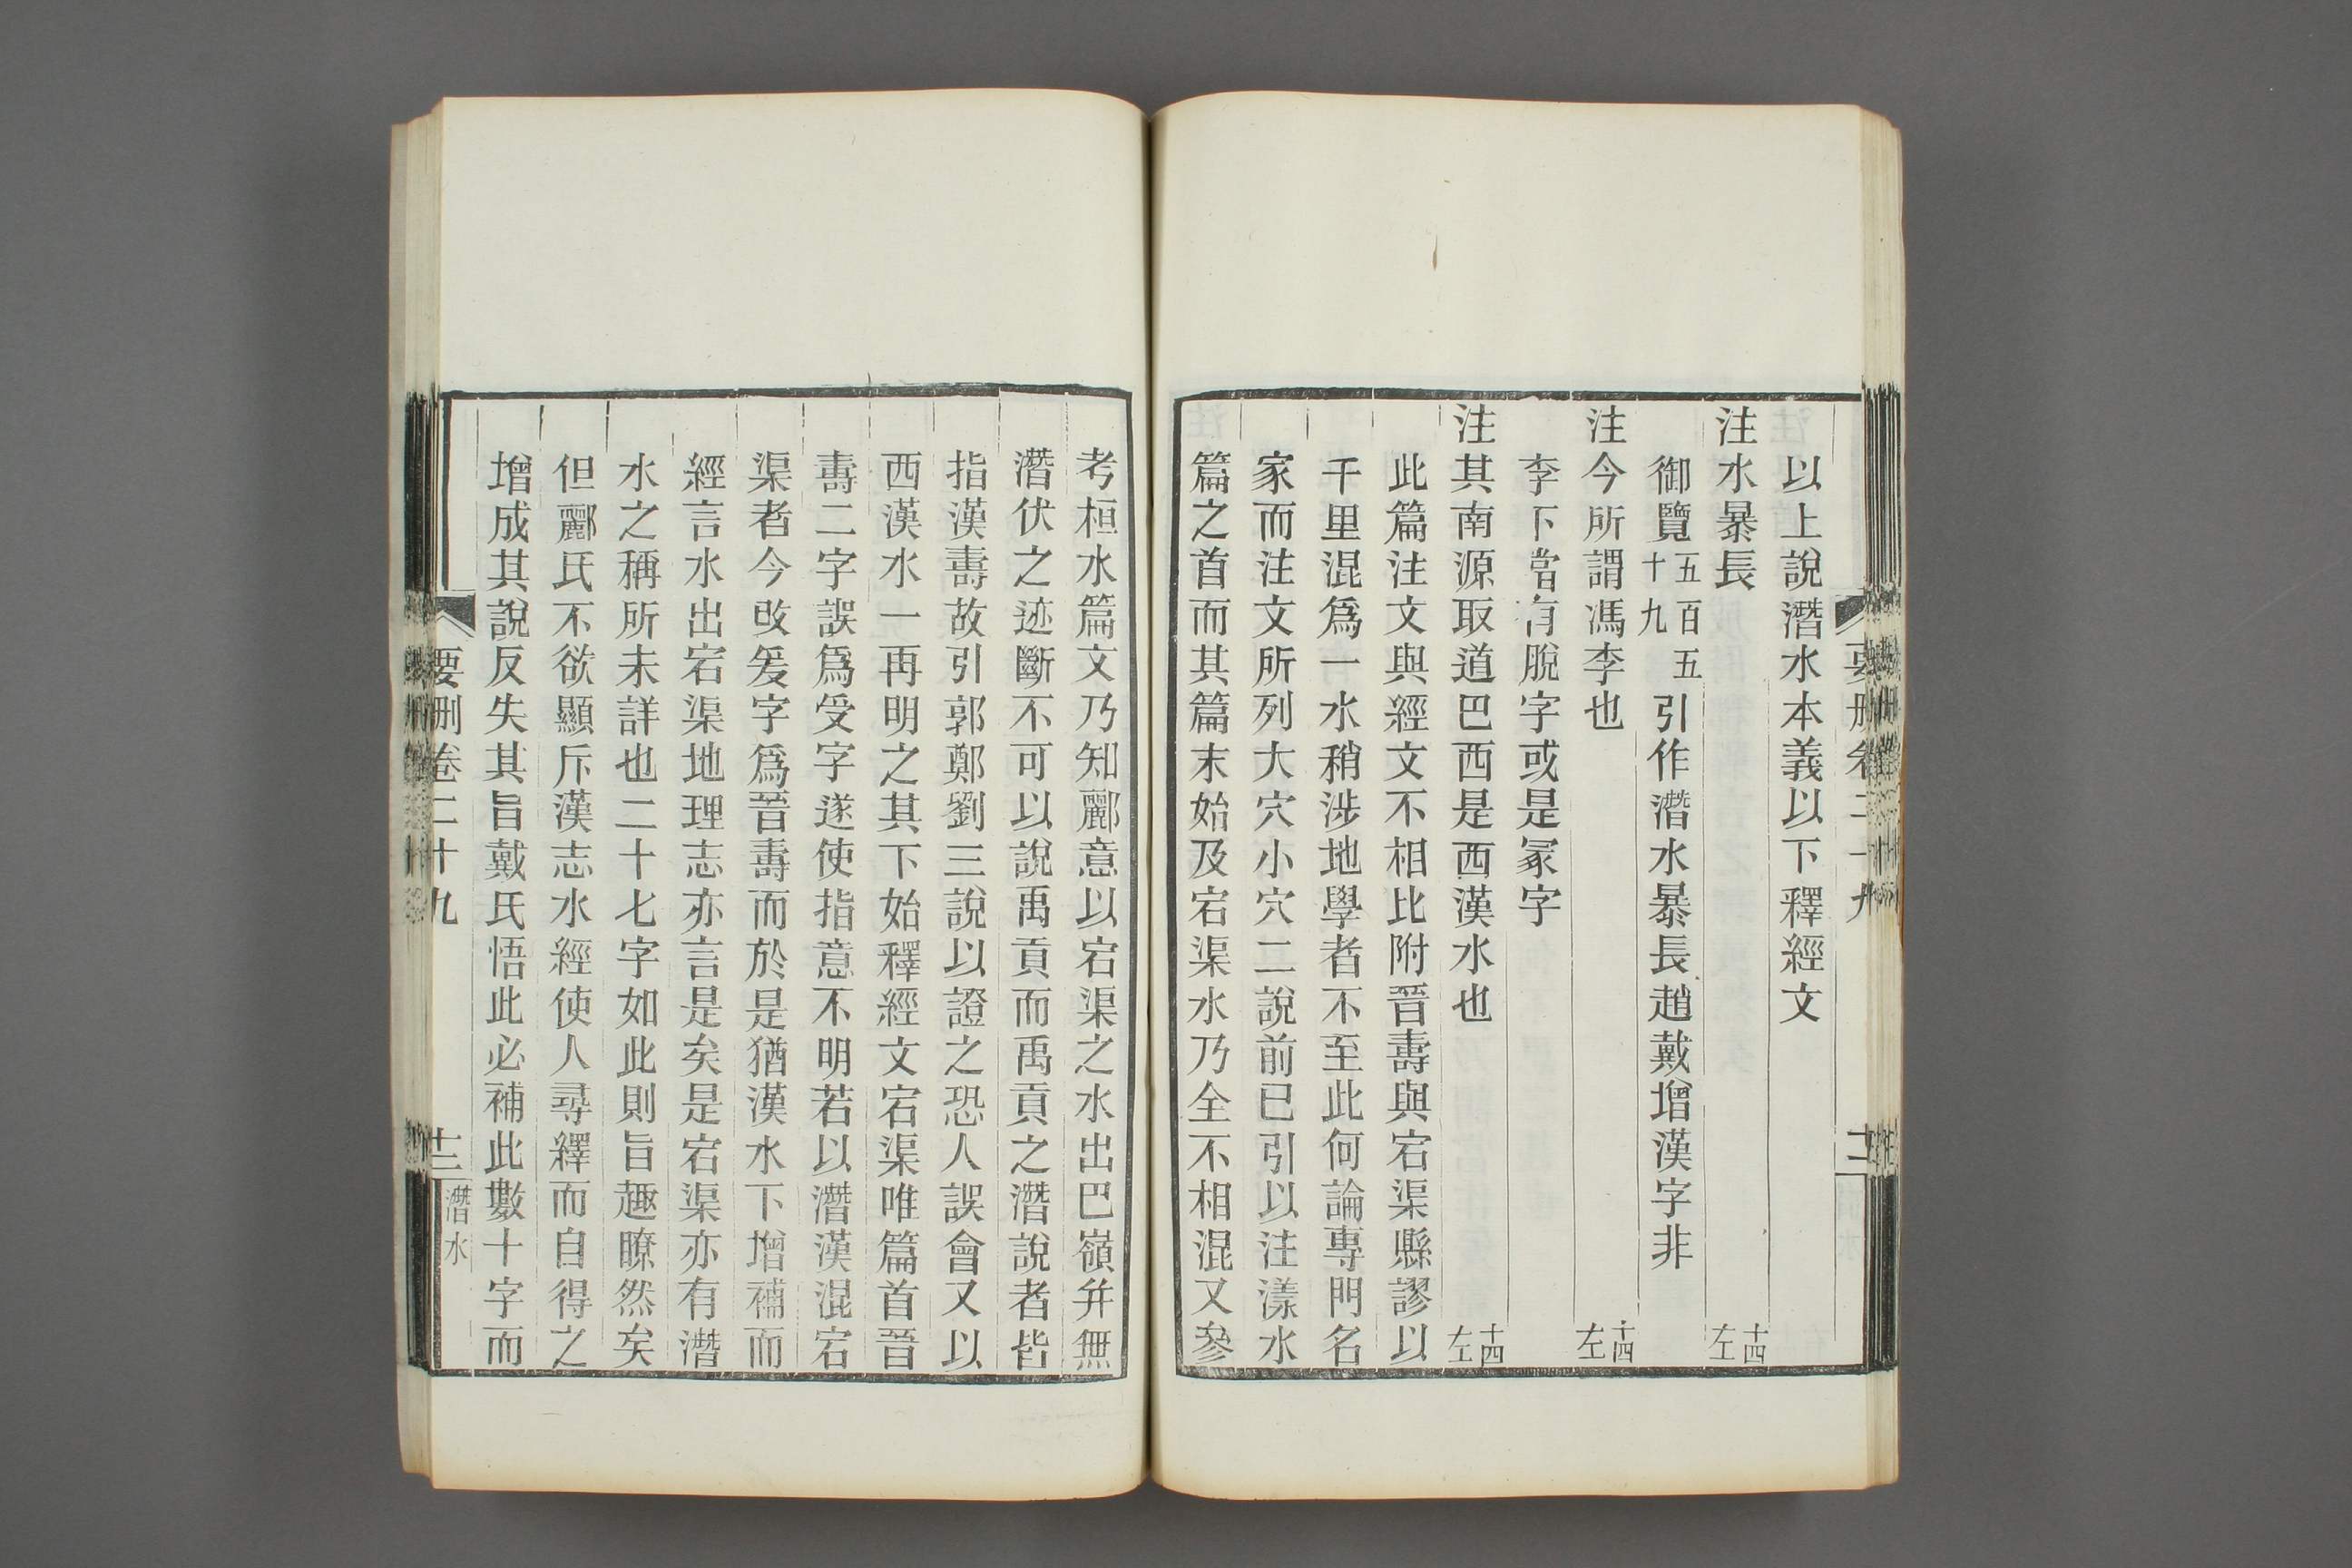 以上說潛水本義以下釋經文
注水暴長 十四左
御覽五百五十九引作潛水暴長趙戴增漢字非
注今所謂馮李也 十四左
李下當有脫字或是冢字
注其南源取道巴西是西漢水也 十四左
此篇注文與經文不相比附晉壽與宕渠縣謬以
千里混爲一水稍涉地學者不至此何論專門名
家而注文所列大穴小穴二說前已引以注漾水
篇之首而其篇末始及宕渠水乃全不相混又參
考桓水篇文乃知酈意以宕渠之水出巴嶺幷無
潛伏之迹斷不可以說禹貢而禹貢之潛說者皆
指漢壽故引郭鄭劉三說以證之恐人誤會又以
西漢水一再明之其下始釋經文宕渠唯篇首晉
壽二字誤爲受字遂使指意不明若以潛漢混宕
渠者今改爰字爲晉壽而於是猶漢水下增補而
經言水出宕渠地理志亦言是矣是宕渠亦有潛
水之稱所未詳也二十七字如此則旨趣瞭然矣
但酈氏不欲顯斥漢志水經使人尋繹而自得之
增成其說反失其旨戴氏悟此必補此數十字而
要刪卷二十九 十二 潛水